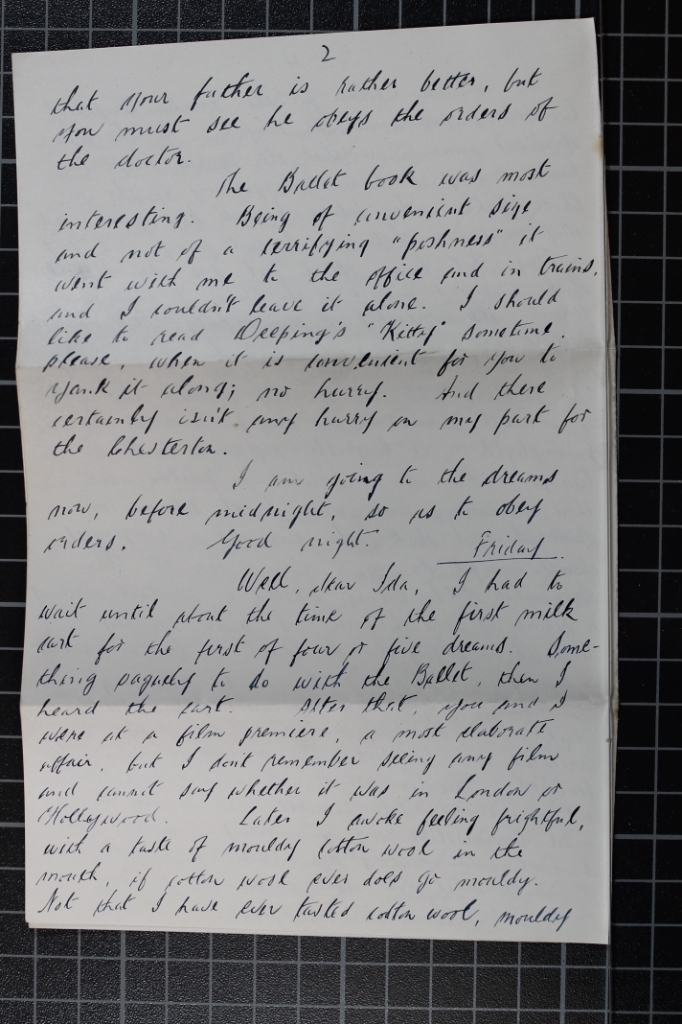 2
that your father is rather better, but
you must see he obeys the orders of
the doctor.
The Ballet book was most
interesting. Being of convenient size
and not of a terrifying "poshness" it
went with me to the office and in trains,
and I couldn't leave it alone. I should
like to read Deeping's "Kitty" sometime,
please, when it is convenient for you to
yank it along; no hurry. And there
certainly isn't any hurry on my part for
the Chesterton.
I am going to the dreams
now, before midnight, so as to obey
orders. Good night. Friday.
Well, dear Ida, I had to
wait until about the time of the first milk
cart for the first of four or five dreams. Some-
thing vaguely to do with the Ballet, then I
heard the cart. After that, you and I
were at a film premiere, a most elaborate
affair, but I don't remember seeing any film
and cannot say whether it was in London or
Hollywood. Later I awoke feeling frightful,
with a taste of mouldy cotton wool in the
mouth, if cotton wool ever does go mouldy.
Not that I have ever tasted cotton wool, mouldy